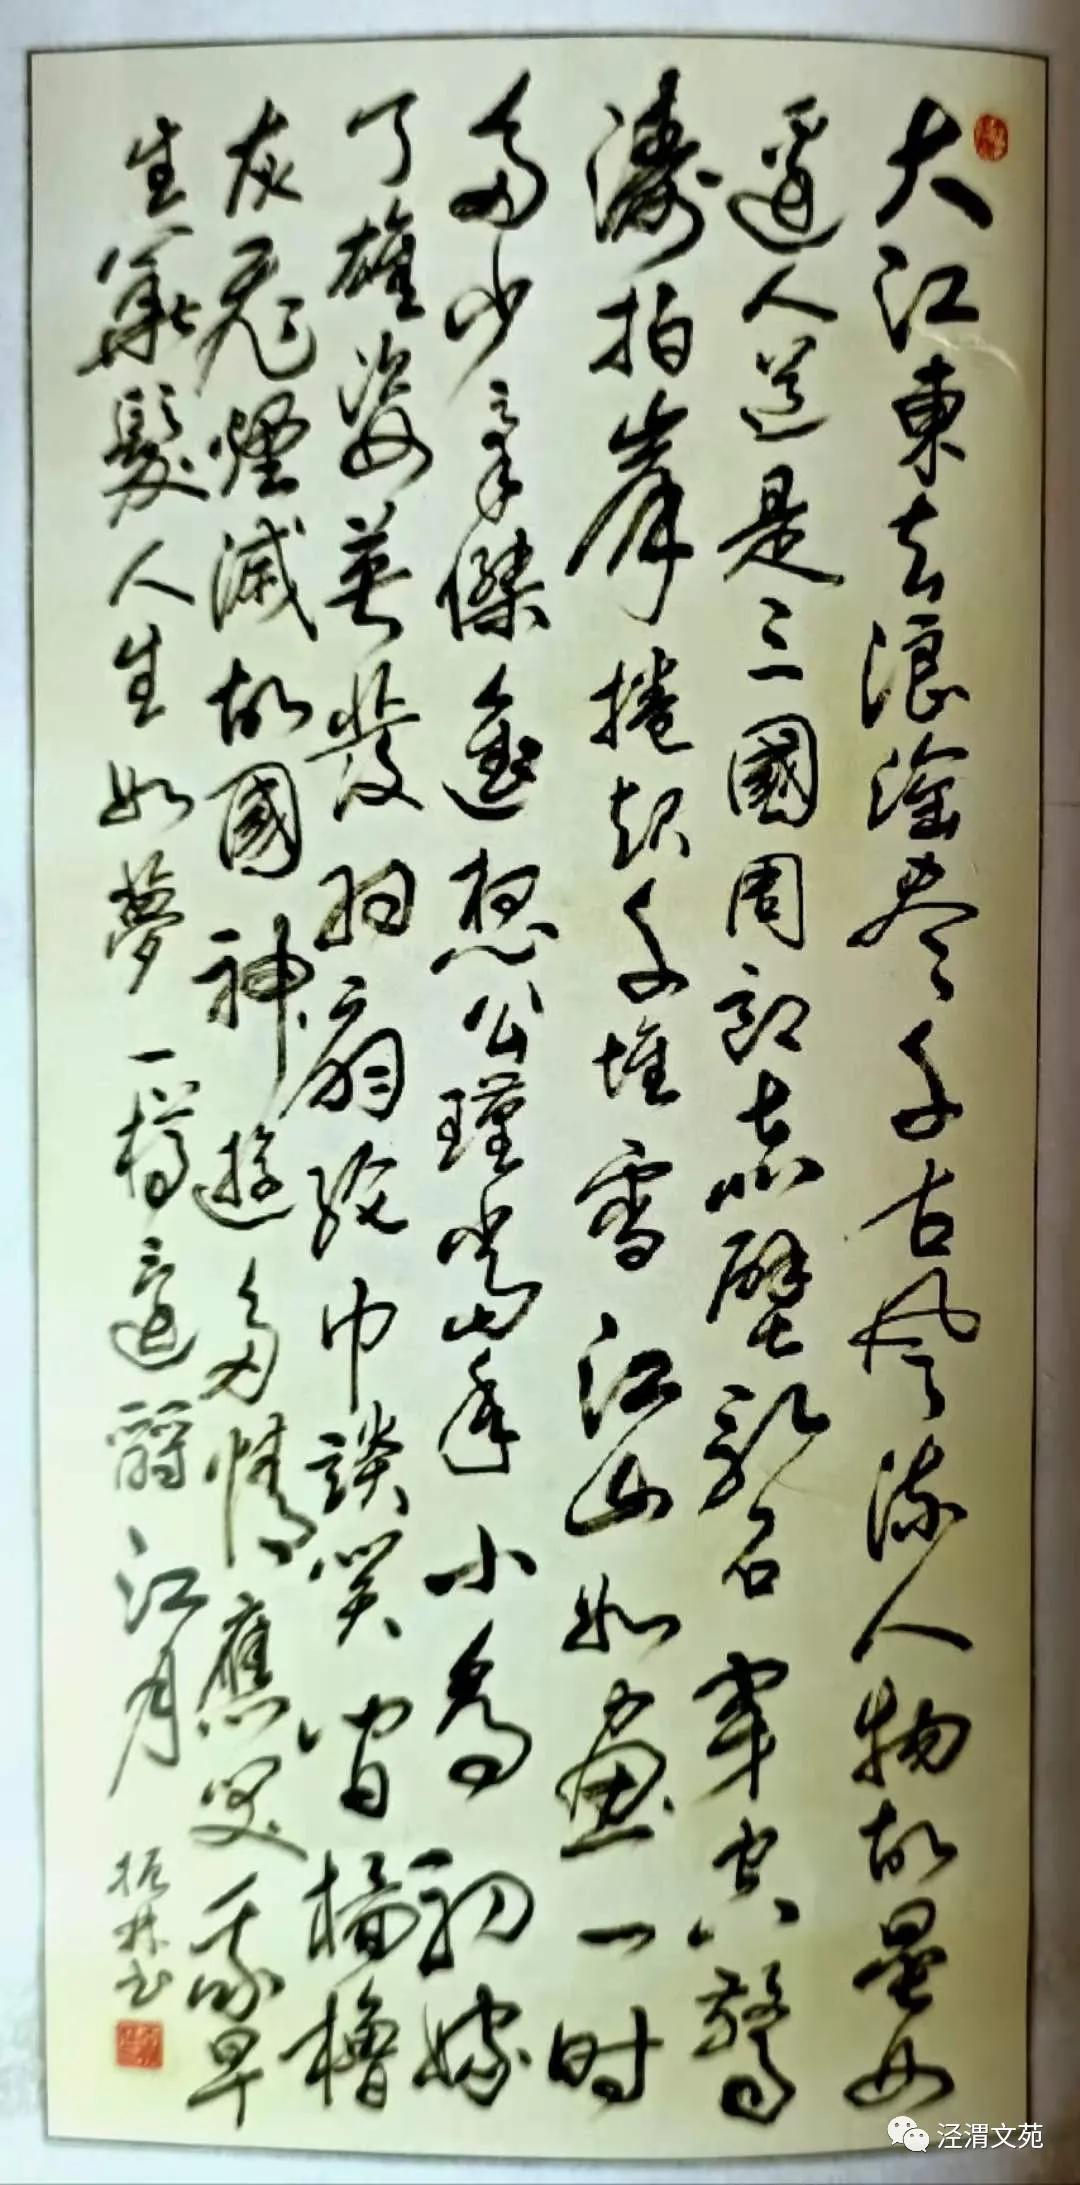 大江東去浪淘尽千古风流人物故壘西
邊人道是三國周郎赤壁乱石穿空驚
濤拍岸捲起千堆雪江山如畫一时
多少豪傑遙想公瑾當年小喬初嫁
了雄姿英發羽扇綸巾談笑間檣櫓
灰飛煙滅故國神遊多情應笑我早
生華髮人生如夢一樽還酹江月
振林书
泾渭文苑